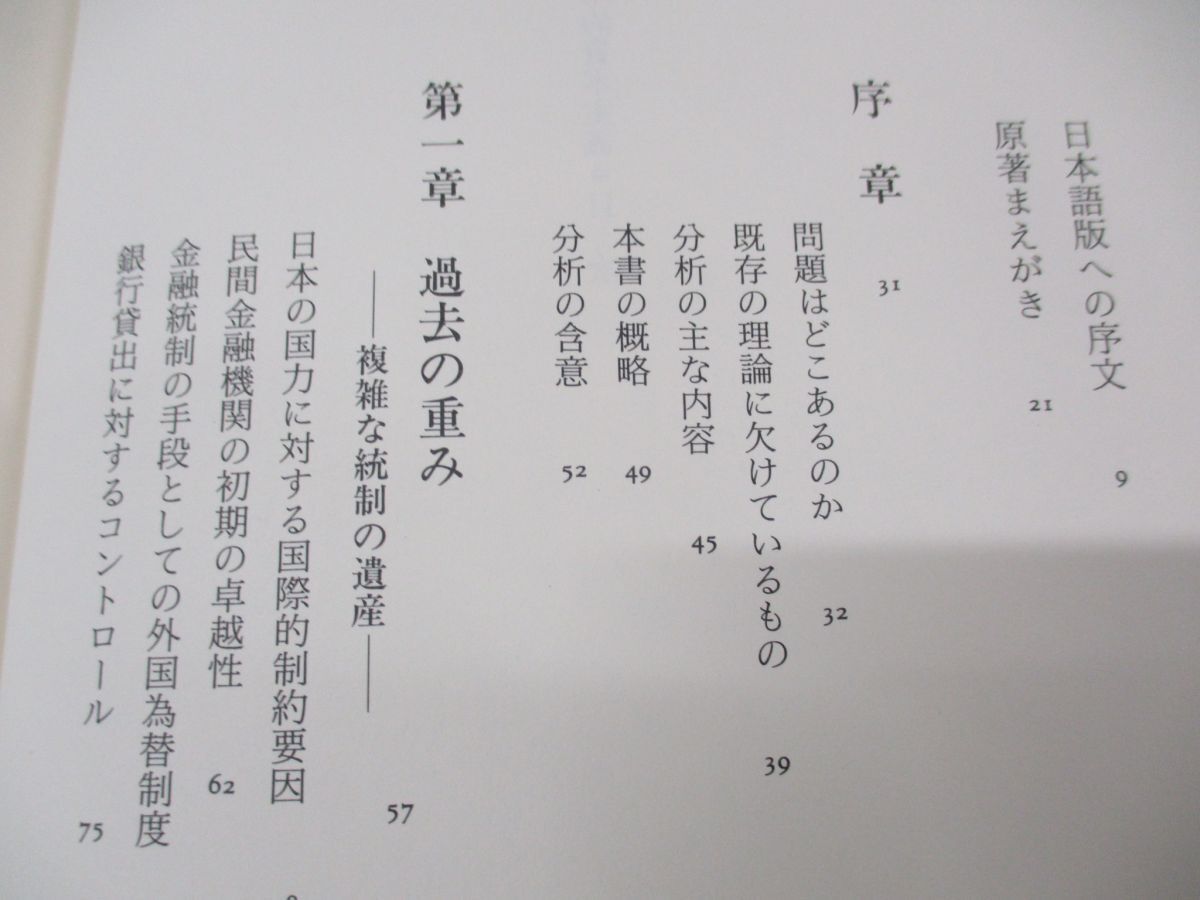 日本語版への序文 9
原著まえがき 21
序章 31
問題はどこあるのか 32
既存の理論に欠けているもの 39
分析の主な内容 45
本書の概略 49
分析の含意 52
第一章 過去の重み
——複雑な統制の遺産—— 57
日本の国力に対する国際的制約要因
民間金融機関の初期の卓越性 62
金融統制の手段としての外国為替制度
銀行貸出に対するコントロール 75